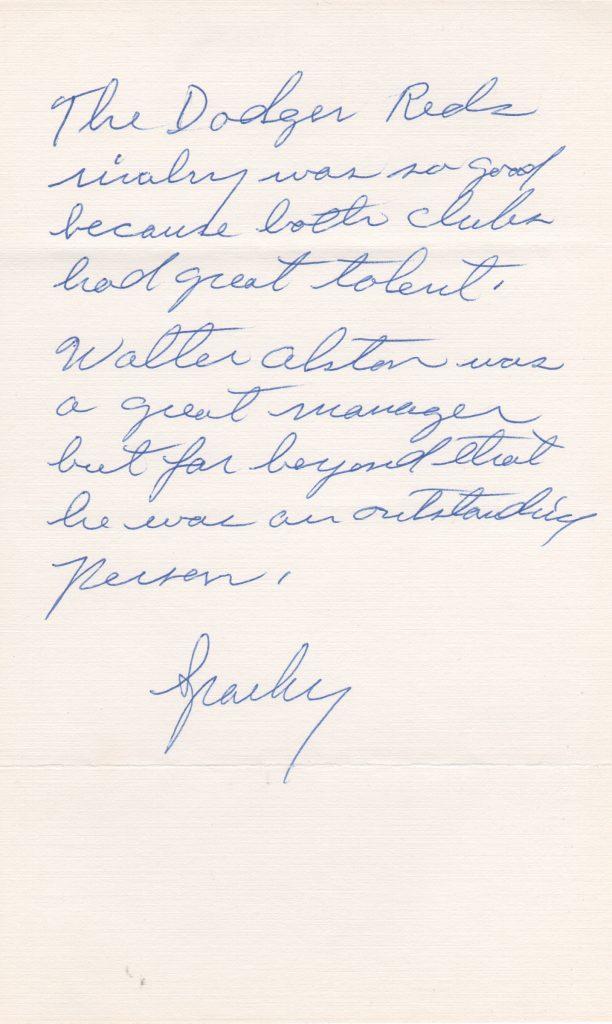 The Dodger Reds
rivalry was so good
because both clubs
had great talent.
Walter Alston was
a great manager
but far beyond that
he was an outstanding
person.
Sparky